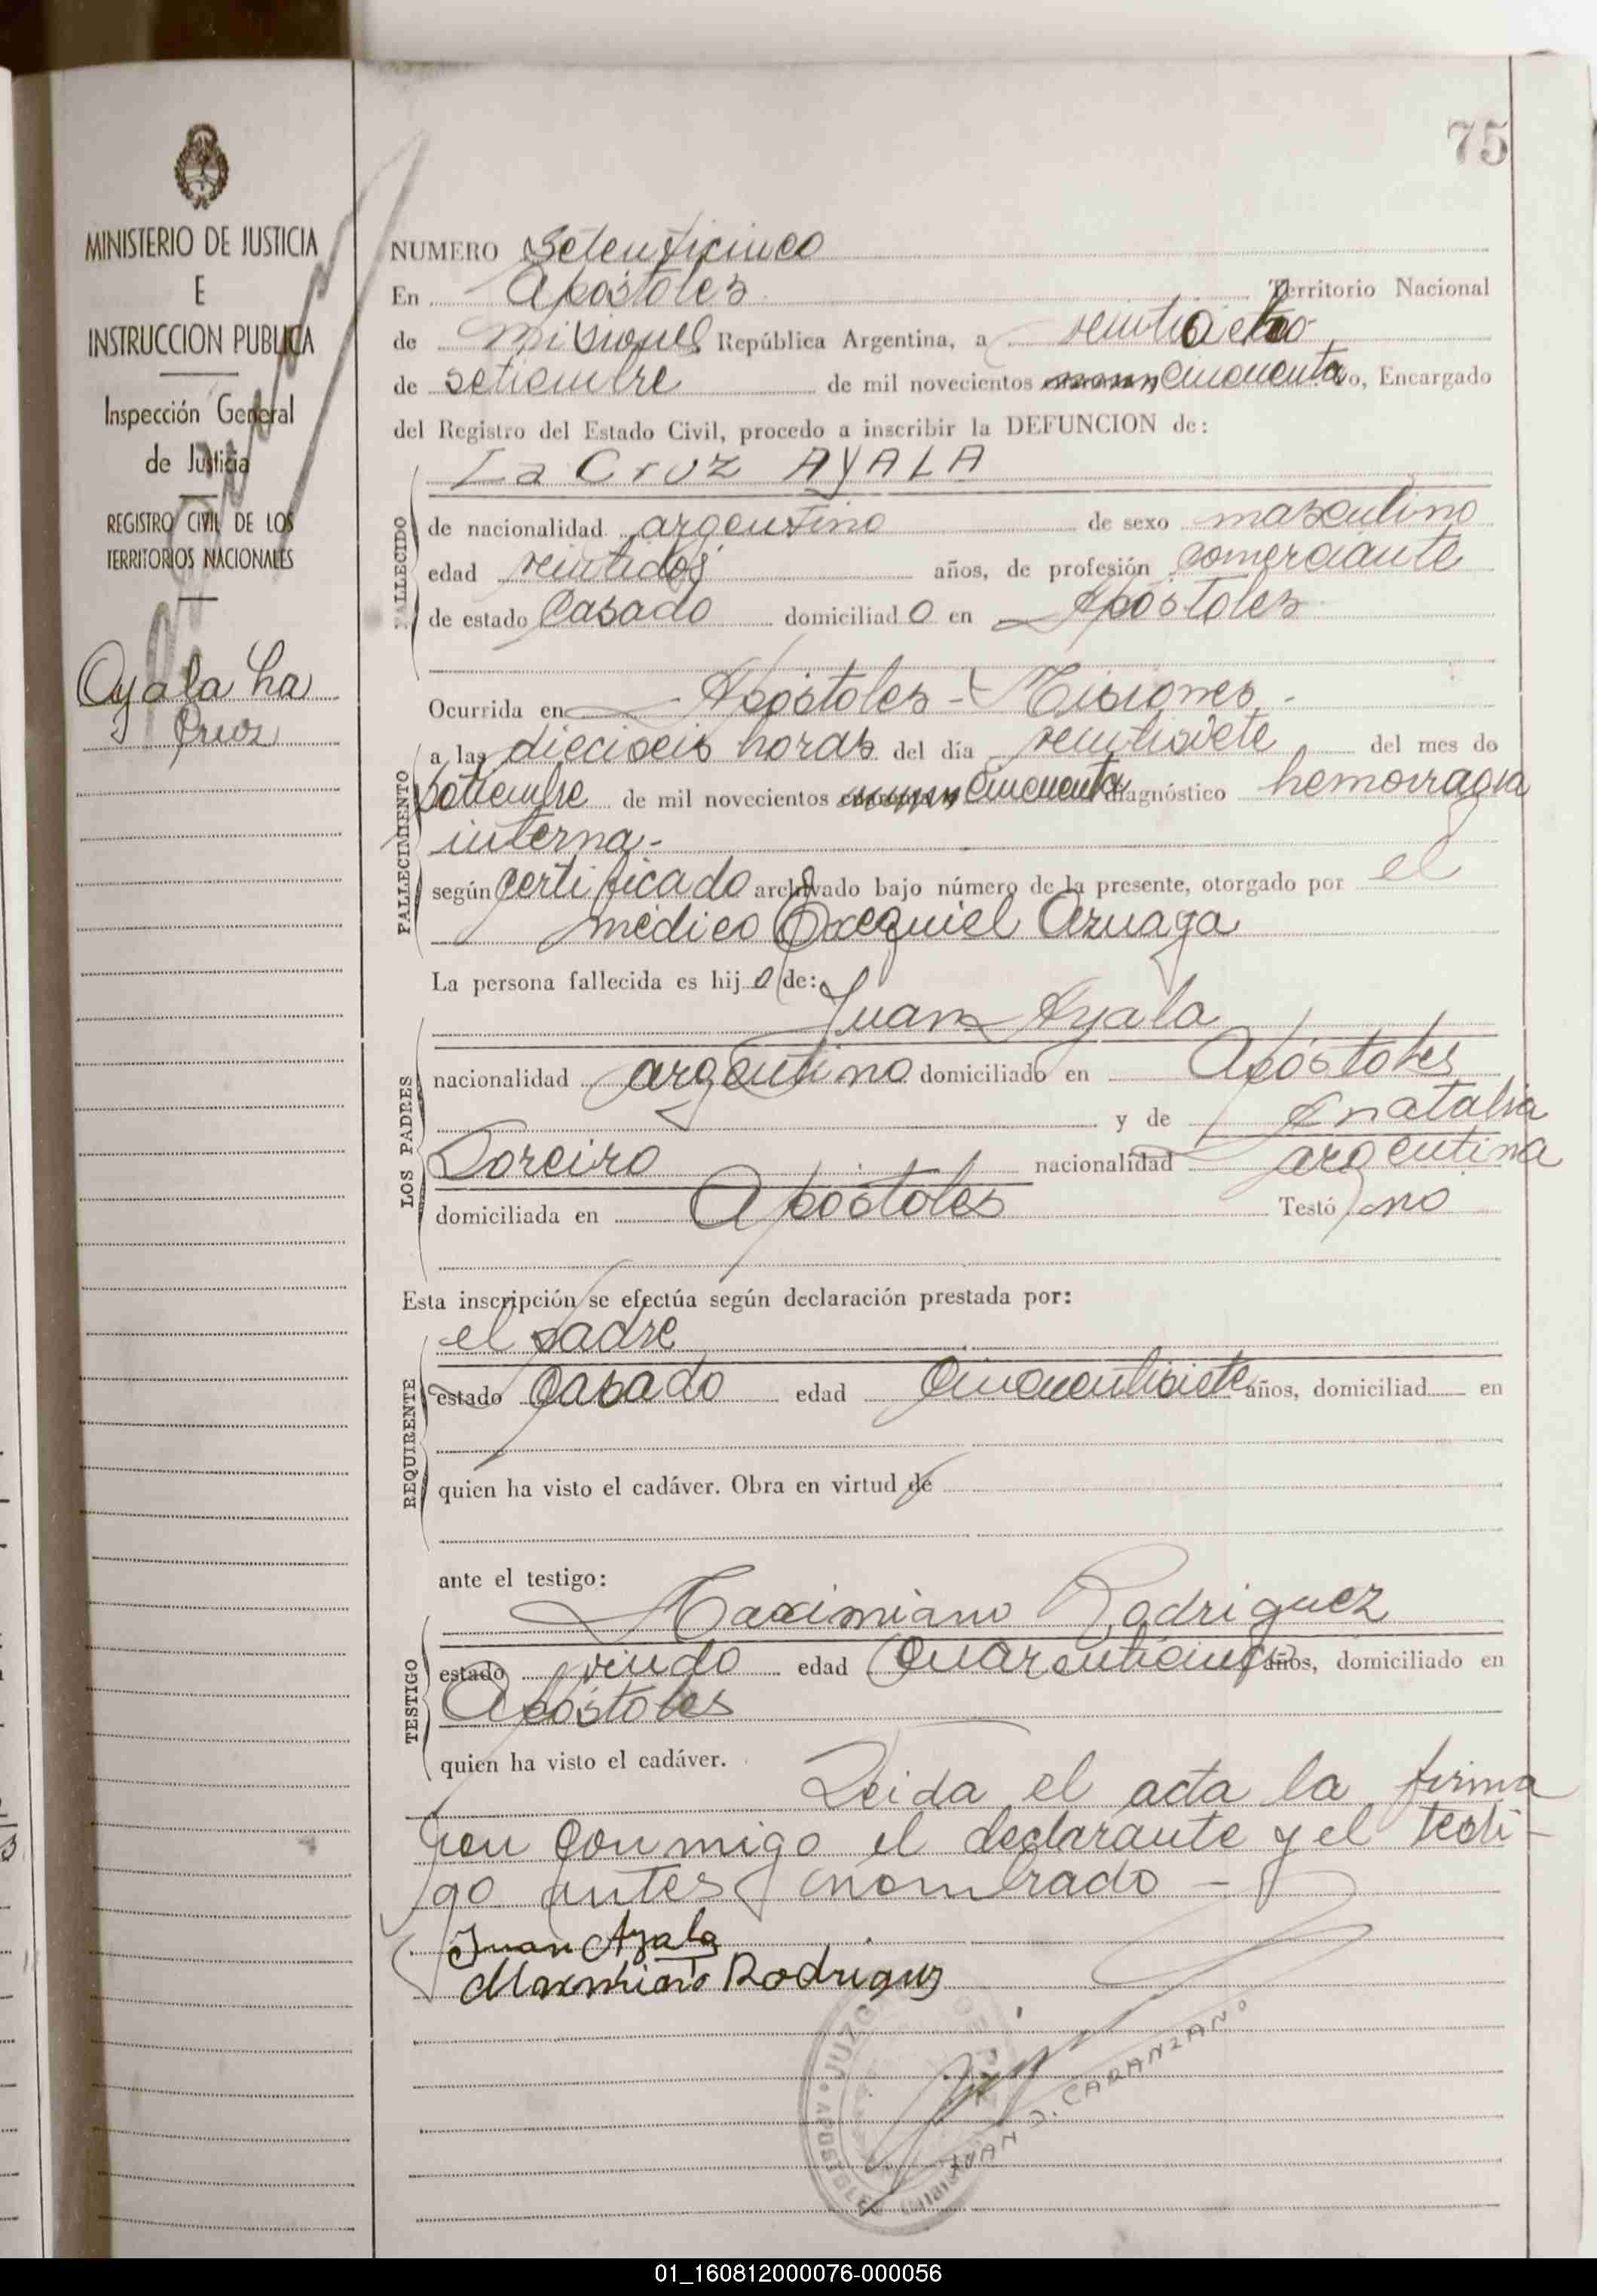 75
MINISTERIO DE JUSTICIA
E
INSTRUCCION PUBLICA
Inspección General
de Justicia
REGISTRO CIVIL DE LOS
TERRITORIOS NACIONALES
Ayala La
Cruz
NUMERO Setenticinco
En Apóstoles Territorio Nacional
de Misiones República Argentina, a veintiocho
de setiembre de mil novecientos cincuenta yo, Encargado
del Registro del Estado Civil, procedo a inscribir la DEFUNCION de:
La Cruz AYALA
FALLECIDO
de nacionalidad argentino de sexo masculino
edad veintidos años, de profesión comerciante
de estado Casado domiciliado en Apóstoles
Ocurrida en Apóstoles - Misiones.-
FALLECIMIENTO
a las dieciseis horas del día veintisiete del mes de
setiembre de mil novecientos cincuenta diagnóstico hemorragia
interna.-
según certificado archivado bajo número de la presente, otorgado por el
médico Exequiel Azuaga
La persona fallecida es hijo de:
LOS PADRES
Juan Ayala
nacionalidad argentino domiciliado en Apóstoles
y de Natalia
Loreiro nacionalidad argentina
domiciliada en Apóstoles Testó no
Esta inscripción se efectúa según declaración prestada por:
REQUIRENTE
el padre
estado Casado edad Cincuentisiete años, domiciliad en
quien ha visto el cadáver. Obra en virtud de
ante el testigo:
TESTIGO
Maximiano Rodriguez
estado viudo edad Cuarenticinco años, domiciliado en
Apóstoles
quien ha visto el cadáver. Leida el acta la firma
ron conmigo el declarante y el testi-
go antes nombrado -
Juan Ayala
Maximiano Rodriguez
JUAN J. CARANZANO
01_160812000076-000056